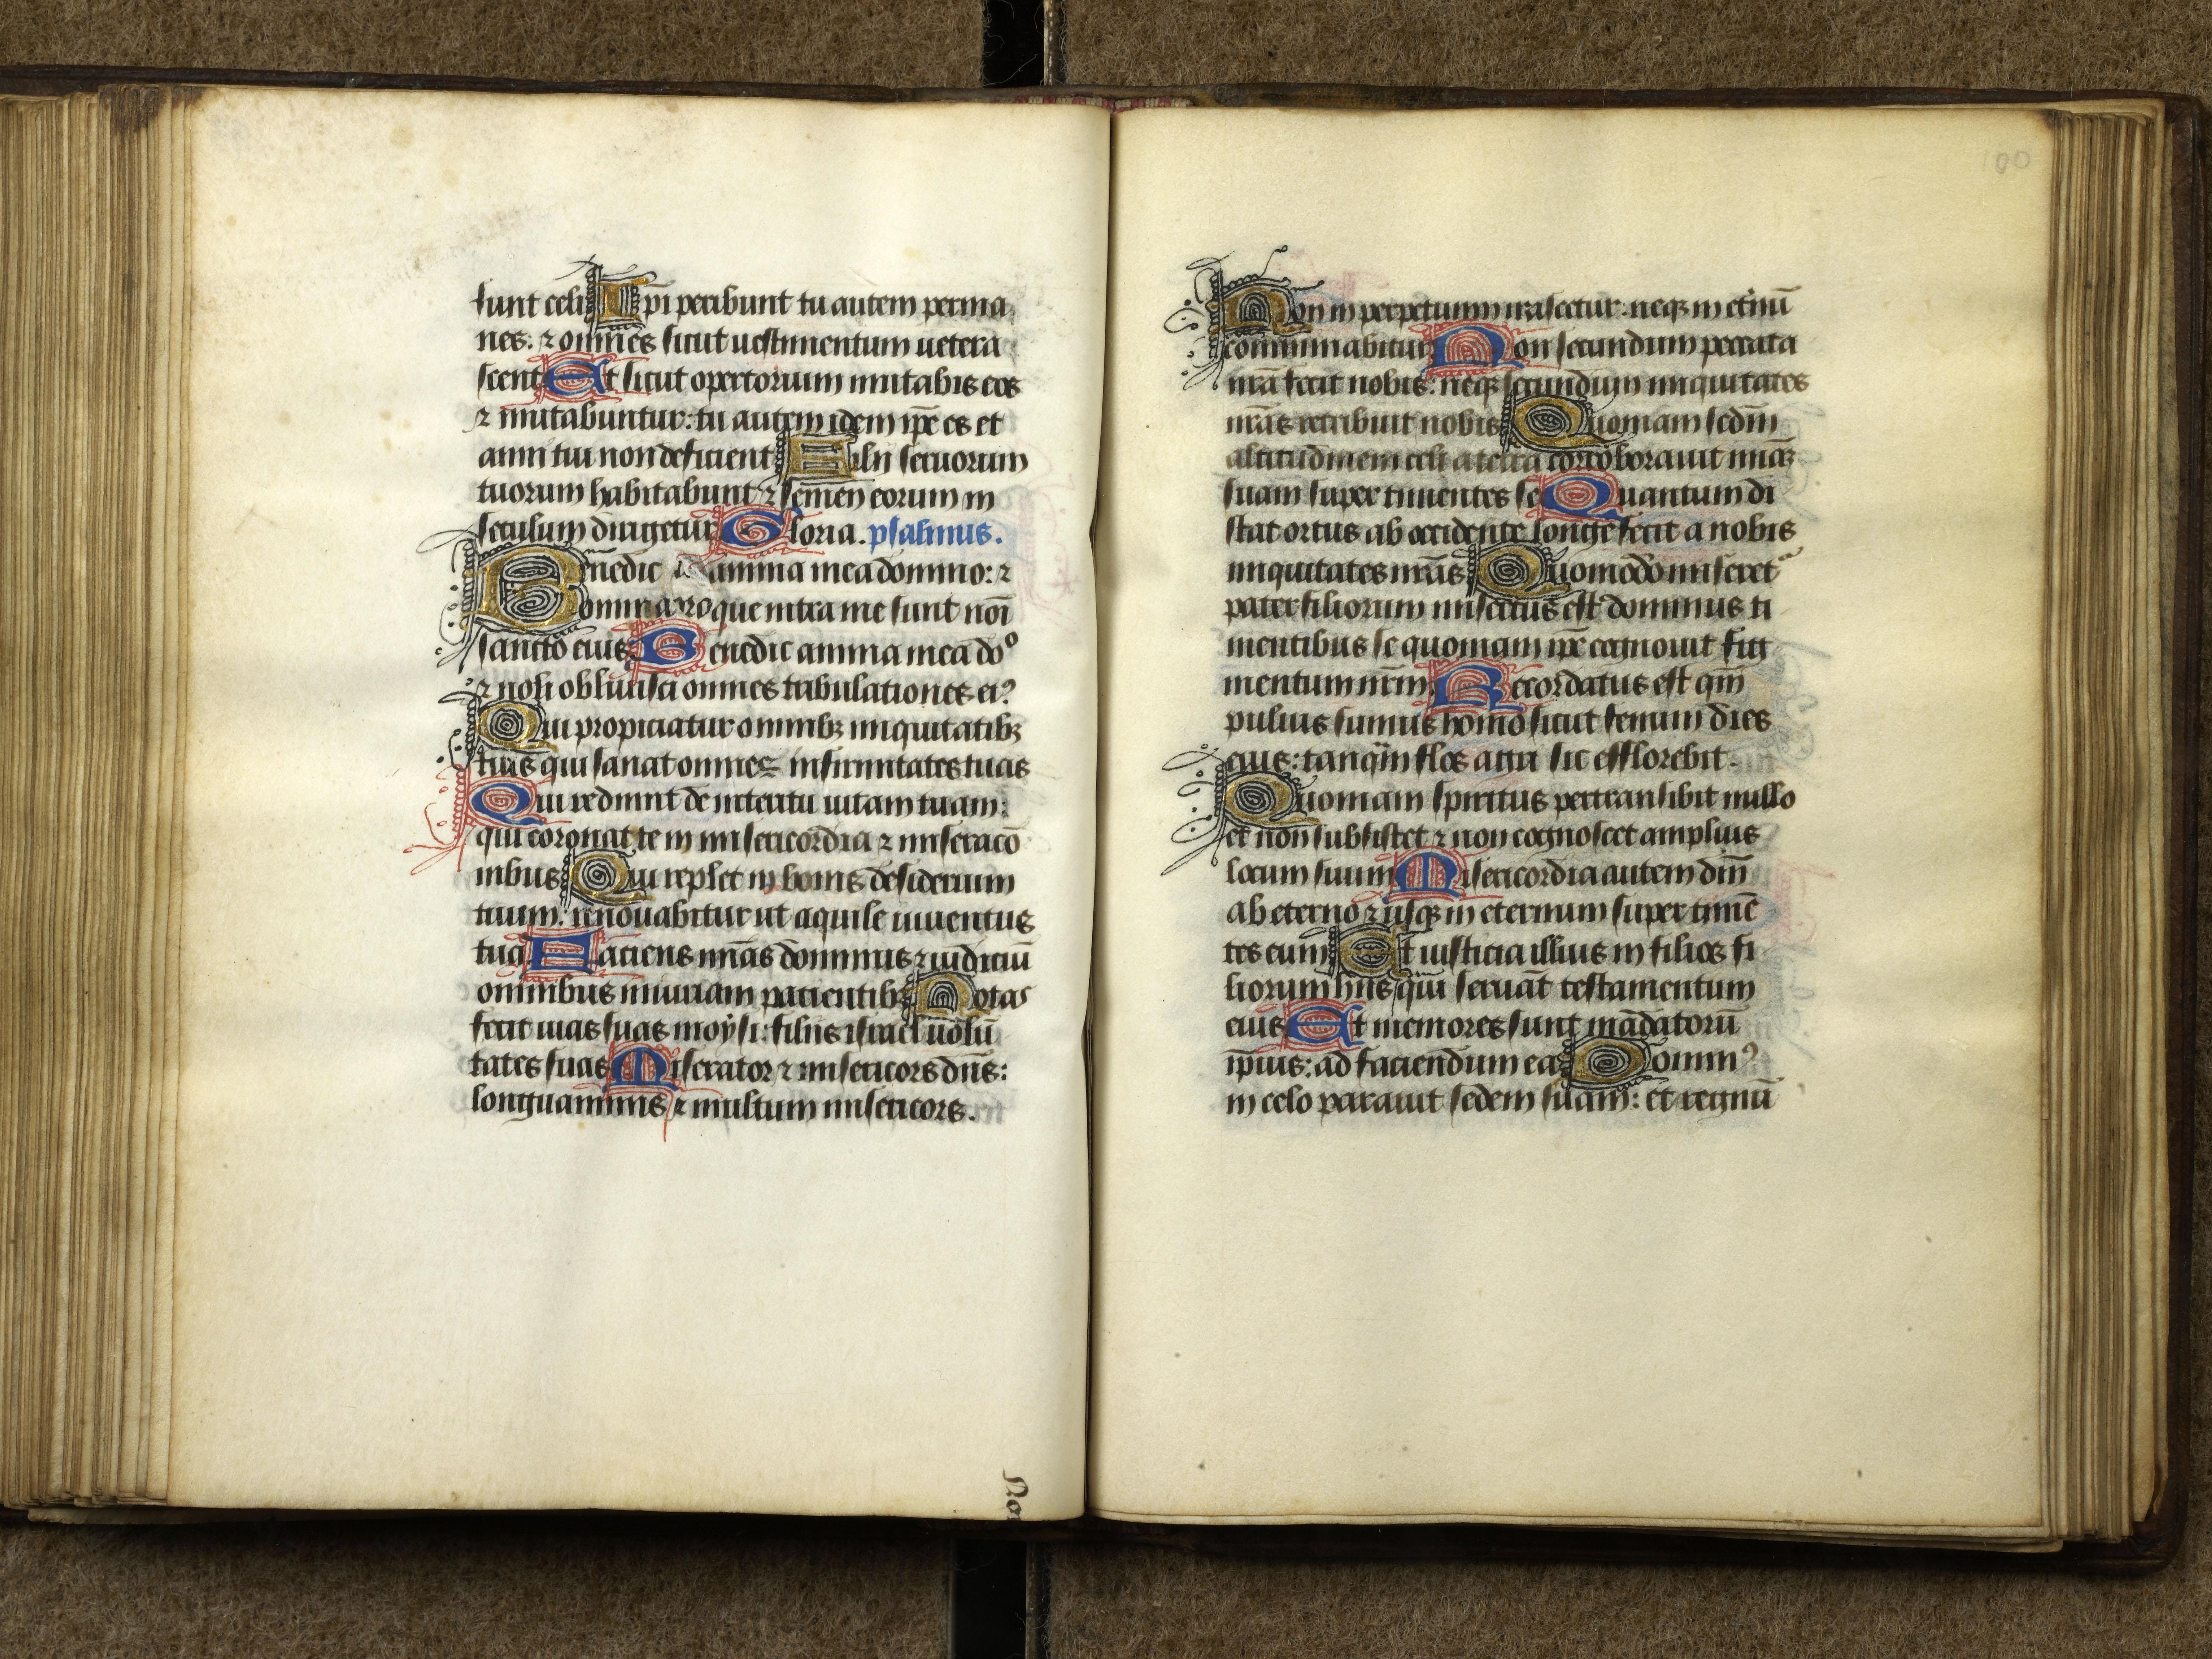 sunt celi Ipi peribunt tu autem perma
nes: ⁊ omnes sicut uestimentum uetera
scent Et sicut opertorium mutabis eos
⁊ mutabuntur: tu autem idem ip̄e es et
anni tui non deficient Filii seruorum
tuorum habitabunt ⁊ semen eorum in
seculum dirigetur Gloria. psalmus.
Benedic anima mea domino: ⁊
omnia que intra me sunt noī
sancto eius Benedic anima mea doº
⁊ noli obliuisci omnes tribulationes eiꝰ
Qui propiciatur omnibꝫ iniquitatibꝫ
tuis qui sanat omnes infirmitates tuas
Qui redimit de interitu uitam tuam:
qui coronat te in misericordia ⁊ miseracō
nibus Qui replet in bonis desiderium
tuum: renouabitur ut aquile iuuentus
tua Faciens mīas dominus ⁊ iudiciū
omnibus iniuriam pacientibꝫ Notas
fecit uias suas moysi: filiis israel uolū
tates suas Miserator ⁊ misericors dn̄s:
longuanimis ⁊ multum misericors.
No
100
Non in perpetuum irascetur: neqꝫ in etn̄ū
comminabitur Non secundum peccata
nr̄a fecit nobis: neqꝫ secundum iniquitates
nr̄as retribuit nobis Quoniam scdm̄
altitudinem celi a terra corroborauit mīaꝫ
suam super timentes se Quantum di
stat ortus ab occidente longe fecit a nobis
iniquitates nr̄as Quomodo miseret᷑
pater filiorum misertus est dominus ti
mentibus se quoniam ip̄e cognouit fig
mentum nr̄m Recordatus est qm̄
puluis sumus homo sicut fenum dies
eius: tanq̄m flos agri sic efflorebit.
Quoniam spiritus pertransibit in illo
et non subsistet ⁊ non cognoscet amplius
locum suum Misericordia autem dn̄i
ab eterno ⁊ usqꝫ in eternum super timē
tes eum Et iusticia illius in filios fi
liorum hiis qui seruāt testamentum
eius Et memores sunt mādatorū
ip̄ius: ad faciendum ea Dominꝰ
in celo parauit sedem suam: et regnū